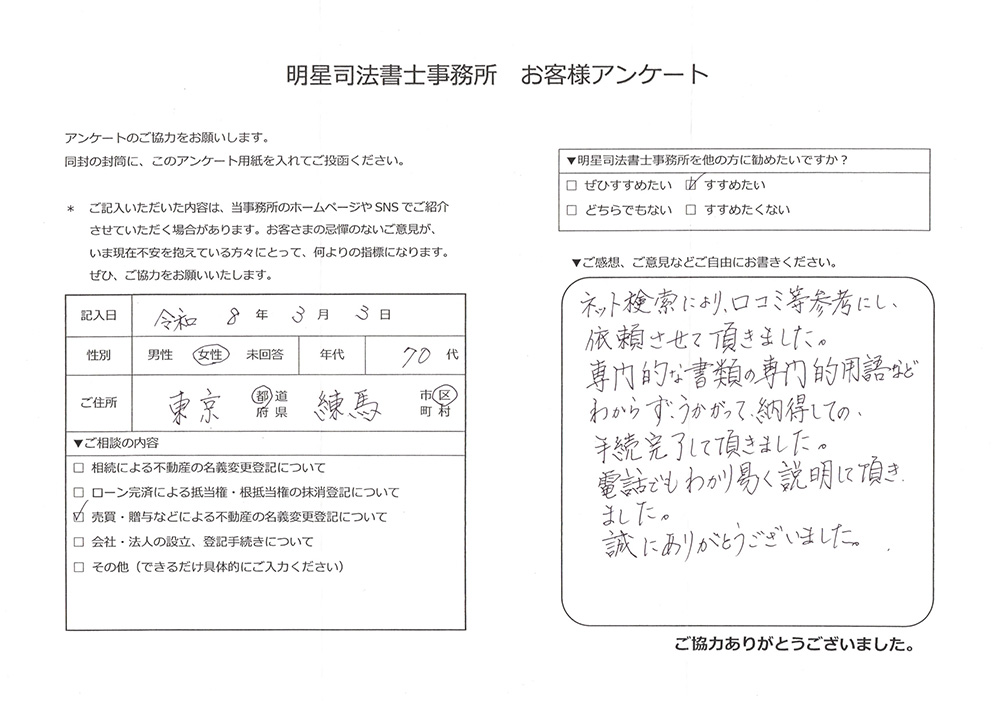 明星司法書士事務所　お客様アンケート
アンケートのご協力をお願いします。
同封の封筒に、このアンケート用紙を入れてご投函ください。
＊　ご記入いただいた内容は、当事務所のホームページや SNS でご紹介
させていただく場合があります。お客さまの忌憚のないご意見が、
いま現在不安を抱えている方々にとって、何よりの指標になります。
ぜひ、ご協力をお願いいたします。
記入日　令和 8 年 3 月 3 日
性別　男性　女性　未回答　年代　70 代
ご住所　東京 都道府県　練馬 市区町村
▼ご相談の内容
□ 相続による不動産の名義変更登記について
□ ローン完済による抵当権・根抵当権の抹消登記について
☑ 売買・贈与などによる不動産の名義変更登記について
□ 会社・法人の設立、登記手続きについて
□ その他（できるだけ具体的にご入力ください）
▼明星司法書士事務所を他の方に勧めたいですか？
□ ぜひすすめたい　☑ すすめたい
□ どちらでもない　□ すすめたくない
▼ご感想、ご意見などご自由にお書きください。
ネット検索により、口コミ等参考にし、
依頼させて頂きました。
専門的な書類の専門的用語など
わからず、うかがって、納得しての、
手続完了して頂きました。
電話でもわかり易く説明して頂き、
ました。
誠にありがとうございました。
ご協力ありがとうございました。